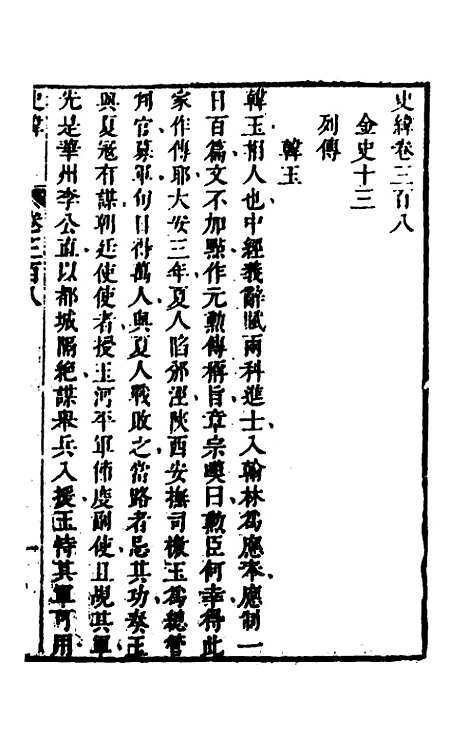 史緯卷三百八
金史十三
列傳
韓玉
韓玉相人也中經義辭賦兩科進士入翰林爲應奉應制一
日百篇文不加點作元勲傳稱旨章宗嘆曰勲臣何幸得此
家作傳耶大安三年夏人陷邠涇陝西安撫司檄玉爲總管
判官募軍旬日得萬人與夏人戰敗之當路者忌其功奏玉
與夏寇有謀朝廷使使者授玉河平軍節度副使且覘其軍
先是華州李公直以都城隔絶謀舉兵入援玉恃其軍可用
史緯
卷三百八
一